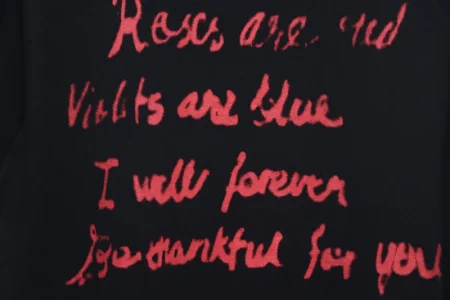 Roses are red
Violets are blue
I will forever
be thankful for you